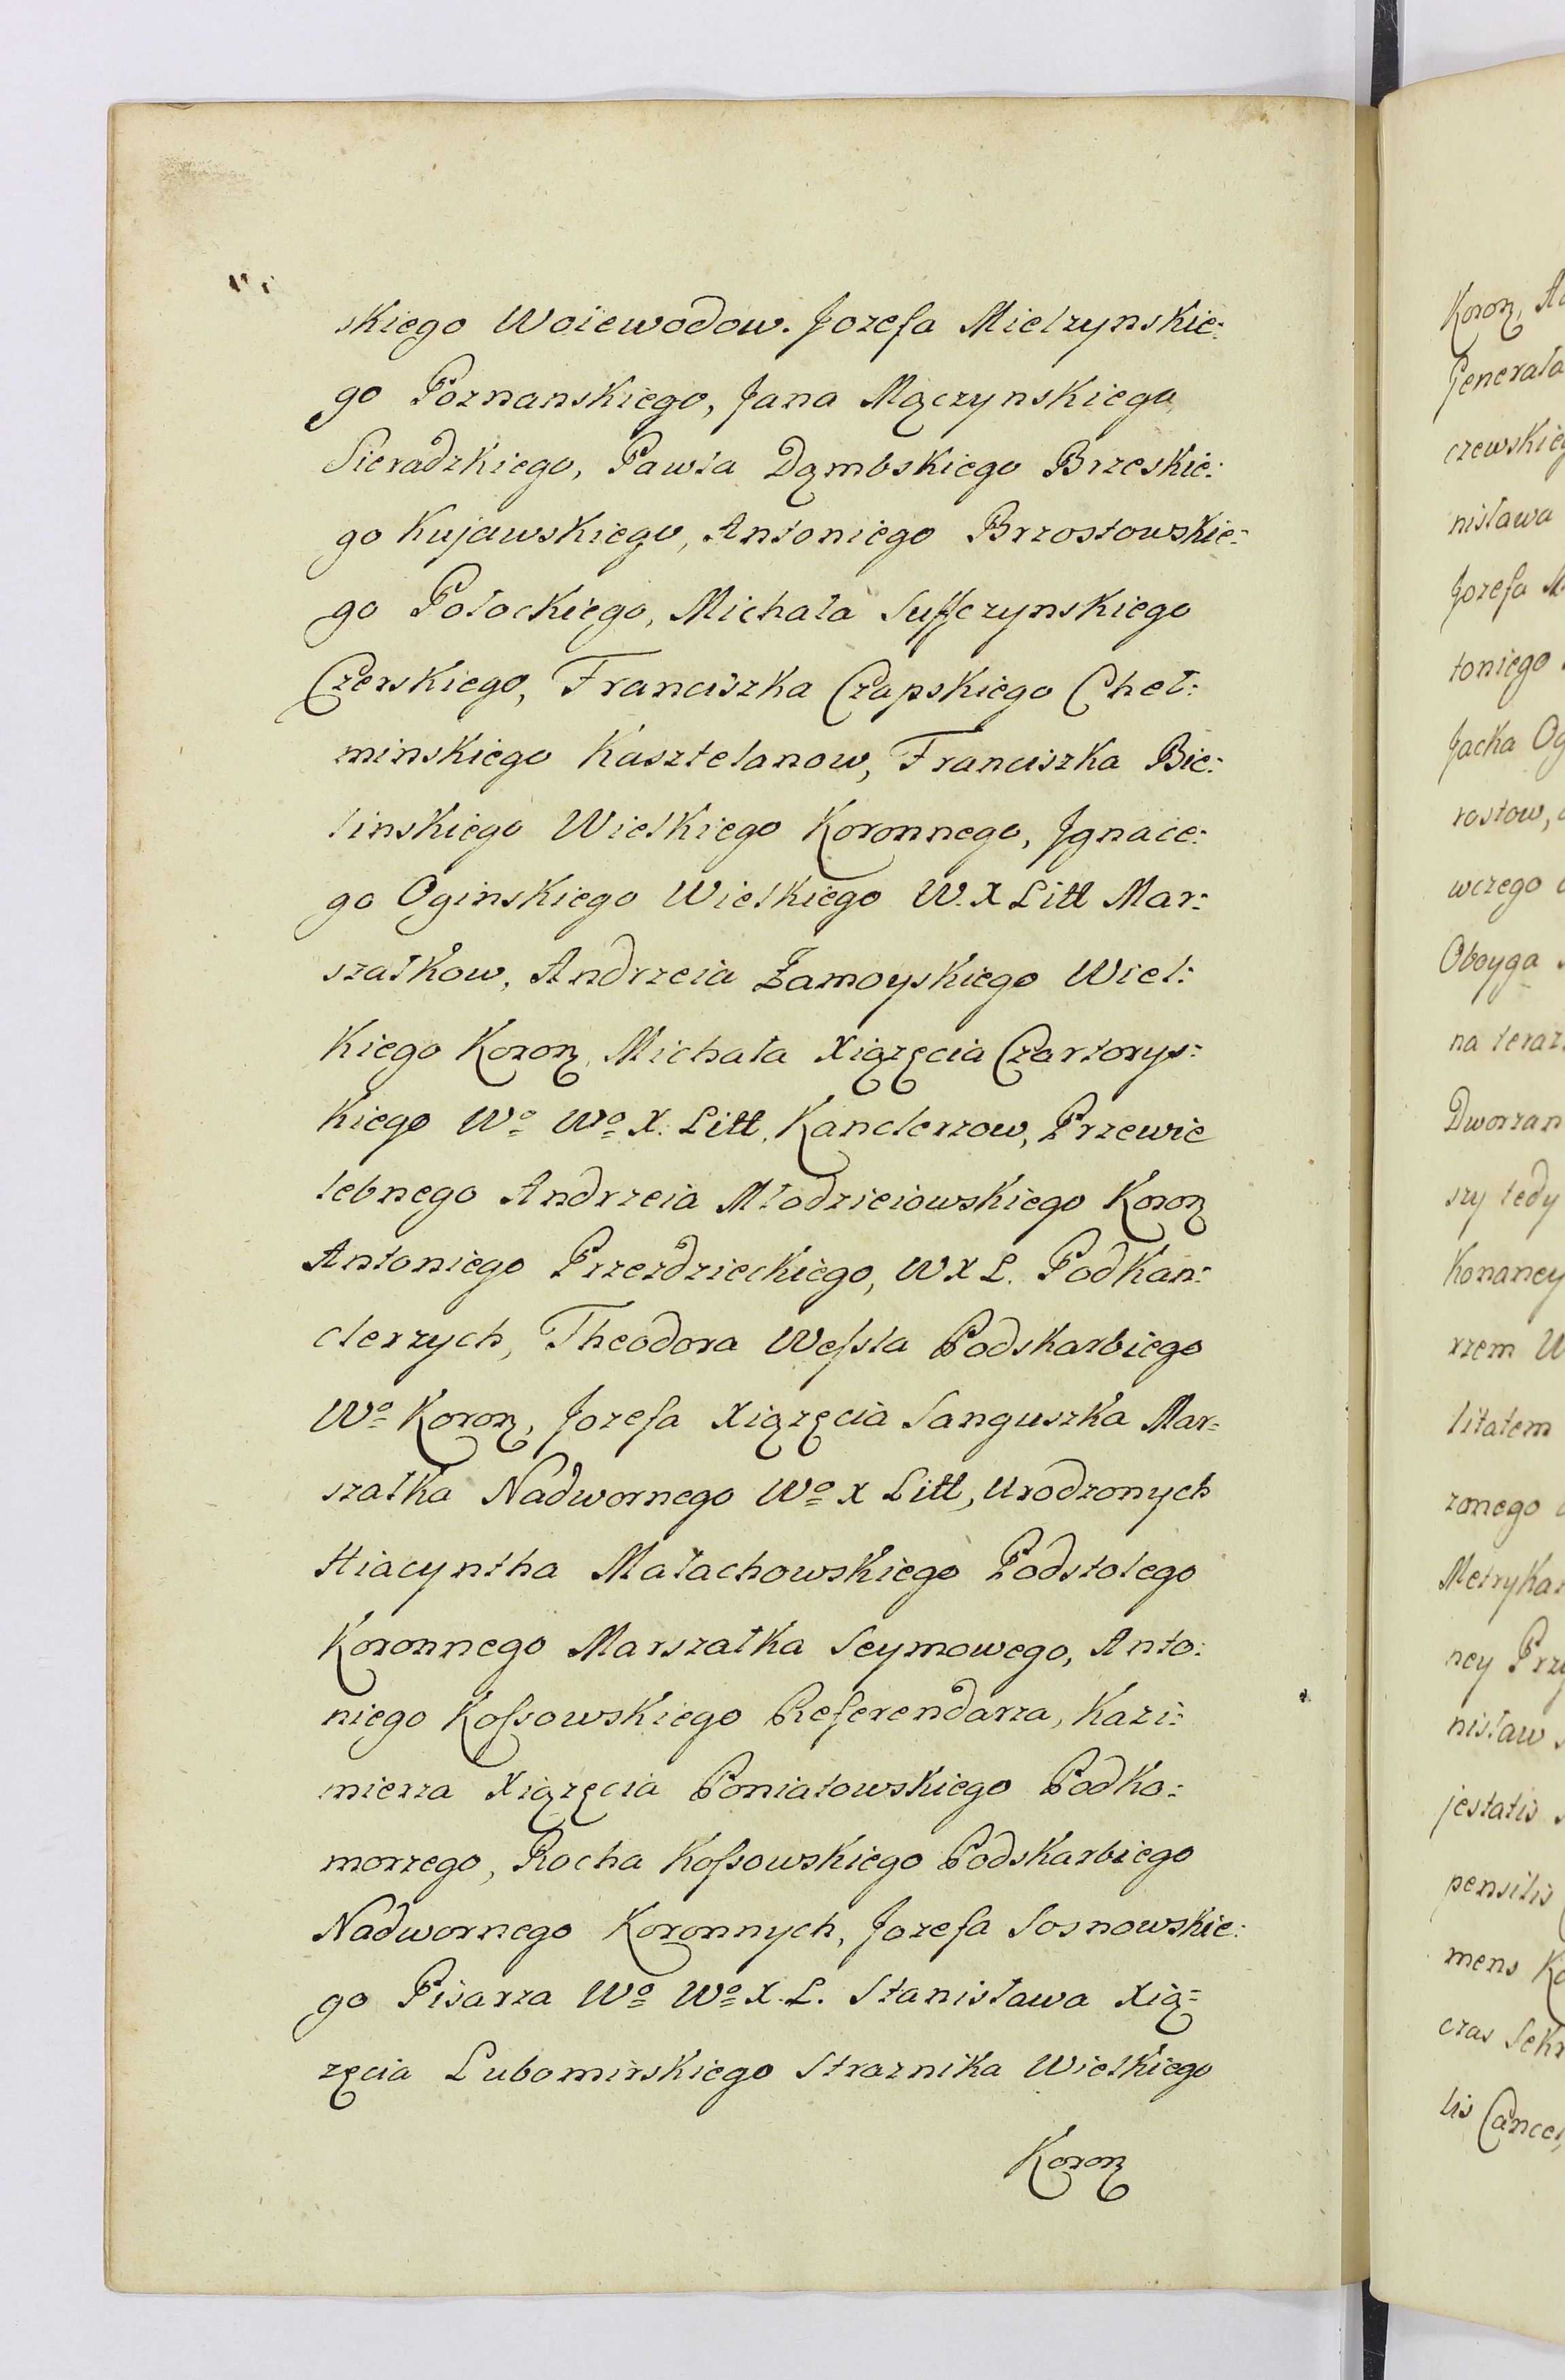 skiego Woiewodow. Jozefa Mielzynskie:
go Poznanskiego, Jana Mączynskiego
Sieradzkiego, Pawła Dąmbskiego Brzeskie:
go Kujawskiego, Antoniego Brzostowskie:
go Połockiego, Michała Suffczynskiego
Czerskiego, Franciszka Czapskiego Cheł:
minskiego Kasztelanow, Franciszka Bie:
linskiego Wielkiego Koronnego, Jgnace:
go Oginskiego Wielkiego W. X Litt Mar:
szałkow, Andrzeia Zamoyskiego Wiel:
kiego Koron, Michała Xiązęcia Czartorys:
kiego Wo Wo X. Litt, Kanclerzow, Przewie
lebnego Andrzeia Młodzieiowskiego Koron
Antoniego Przezdzieckiego, W X L. Podkan:
clerzych, Theodora Wessla Podskarbiego
Wo Koron, Jozefa Xiązęcia Sanguszka Mar=
szałka Nadwornego Wo X Litt, Urodzonych
Hiacyntha Małachowskiego Podstolego
Koronnego Marszałka Seymowego, Anto:
niego Kossowskiego Referendarza, Kazi:
mierza Xiązęcia Poniatowskiego Podko:
morzego, Rocha Kossowskiego Podskarbiego
Nadwornego Koronnych, Jozefa Sosnowskie:
go Pisarza Wo Wo X. L. Stanisława Xią=
zęcia Lubomirskiego Straznika Wielkiego
Koron
Koron,
Generała
czewskieg
nisława
Jozefa M
toniego
Jacka Og
rostow,
wczego
Oboyga
na teraz
Dworzan
szy tedy
Konaney
rzem W
litatem
zonego
Metrykan
ney Przy
nisław
jestatis
pensilis
mens Ko
czas Sekr
lis Cancel